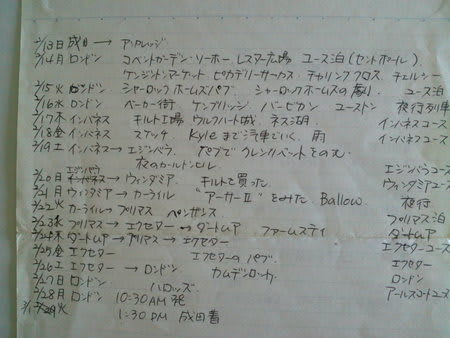 2/13日 成田 → アンカレッジ
2/14月 ロンドン コベントガーデン・ソーホー レスター広場 ユース泊(セントポール)
ケンジントンマーケット ピカデリーサーカス チャリングクロス チェルシー
2/15火 ロンドン シャーロックホームズパブ シャーロックホームズの劇 ユース泊
2/16水 ロンドン ベーカー街 ケンブリッジ バービカン ユーストン 夜行列車
2/17木 インバネス キルト工場 ウルフハート城 ネス湖 インバネスユース
2/18金 インバネス スケッチ Kyleまで汽車でいく 雨 インバネスユース
2/19土 インバネス→エジンバラ パブでグレンリベットをのむ エジンバラユース
夜のカールトンヒル
2/20日 エジンバラ → ウィンダミア キルトを買った ウィンダミアユース
2/21月 ウィンダミア → カーライル "アーサーII"をみた Ballow 夜行
2/22火 カーライル→プリマス ペンザンス プリマス泊
2/23水 プリマス→エクセター → ダートムア ファームステイ ダートムア
2/24木 ダートムア→プリマス→エクセター エクセターユース
2/25金 エクセター エクセターのパブ エクセター
2/26土 エクセター → ロンドン カムデンロック ロンドン
2/27日 ロンドン ハロッズ アールスコートユース
2/28月 ロンドン 10:30AM発
火 1:30PM 成田着